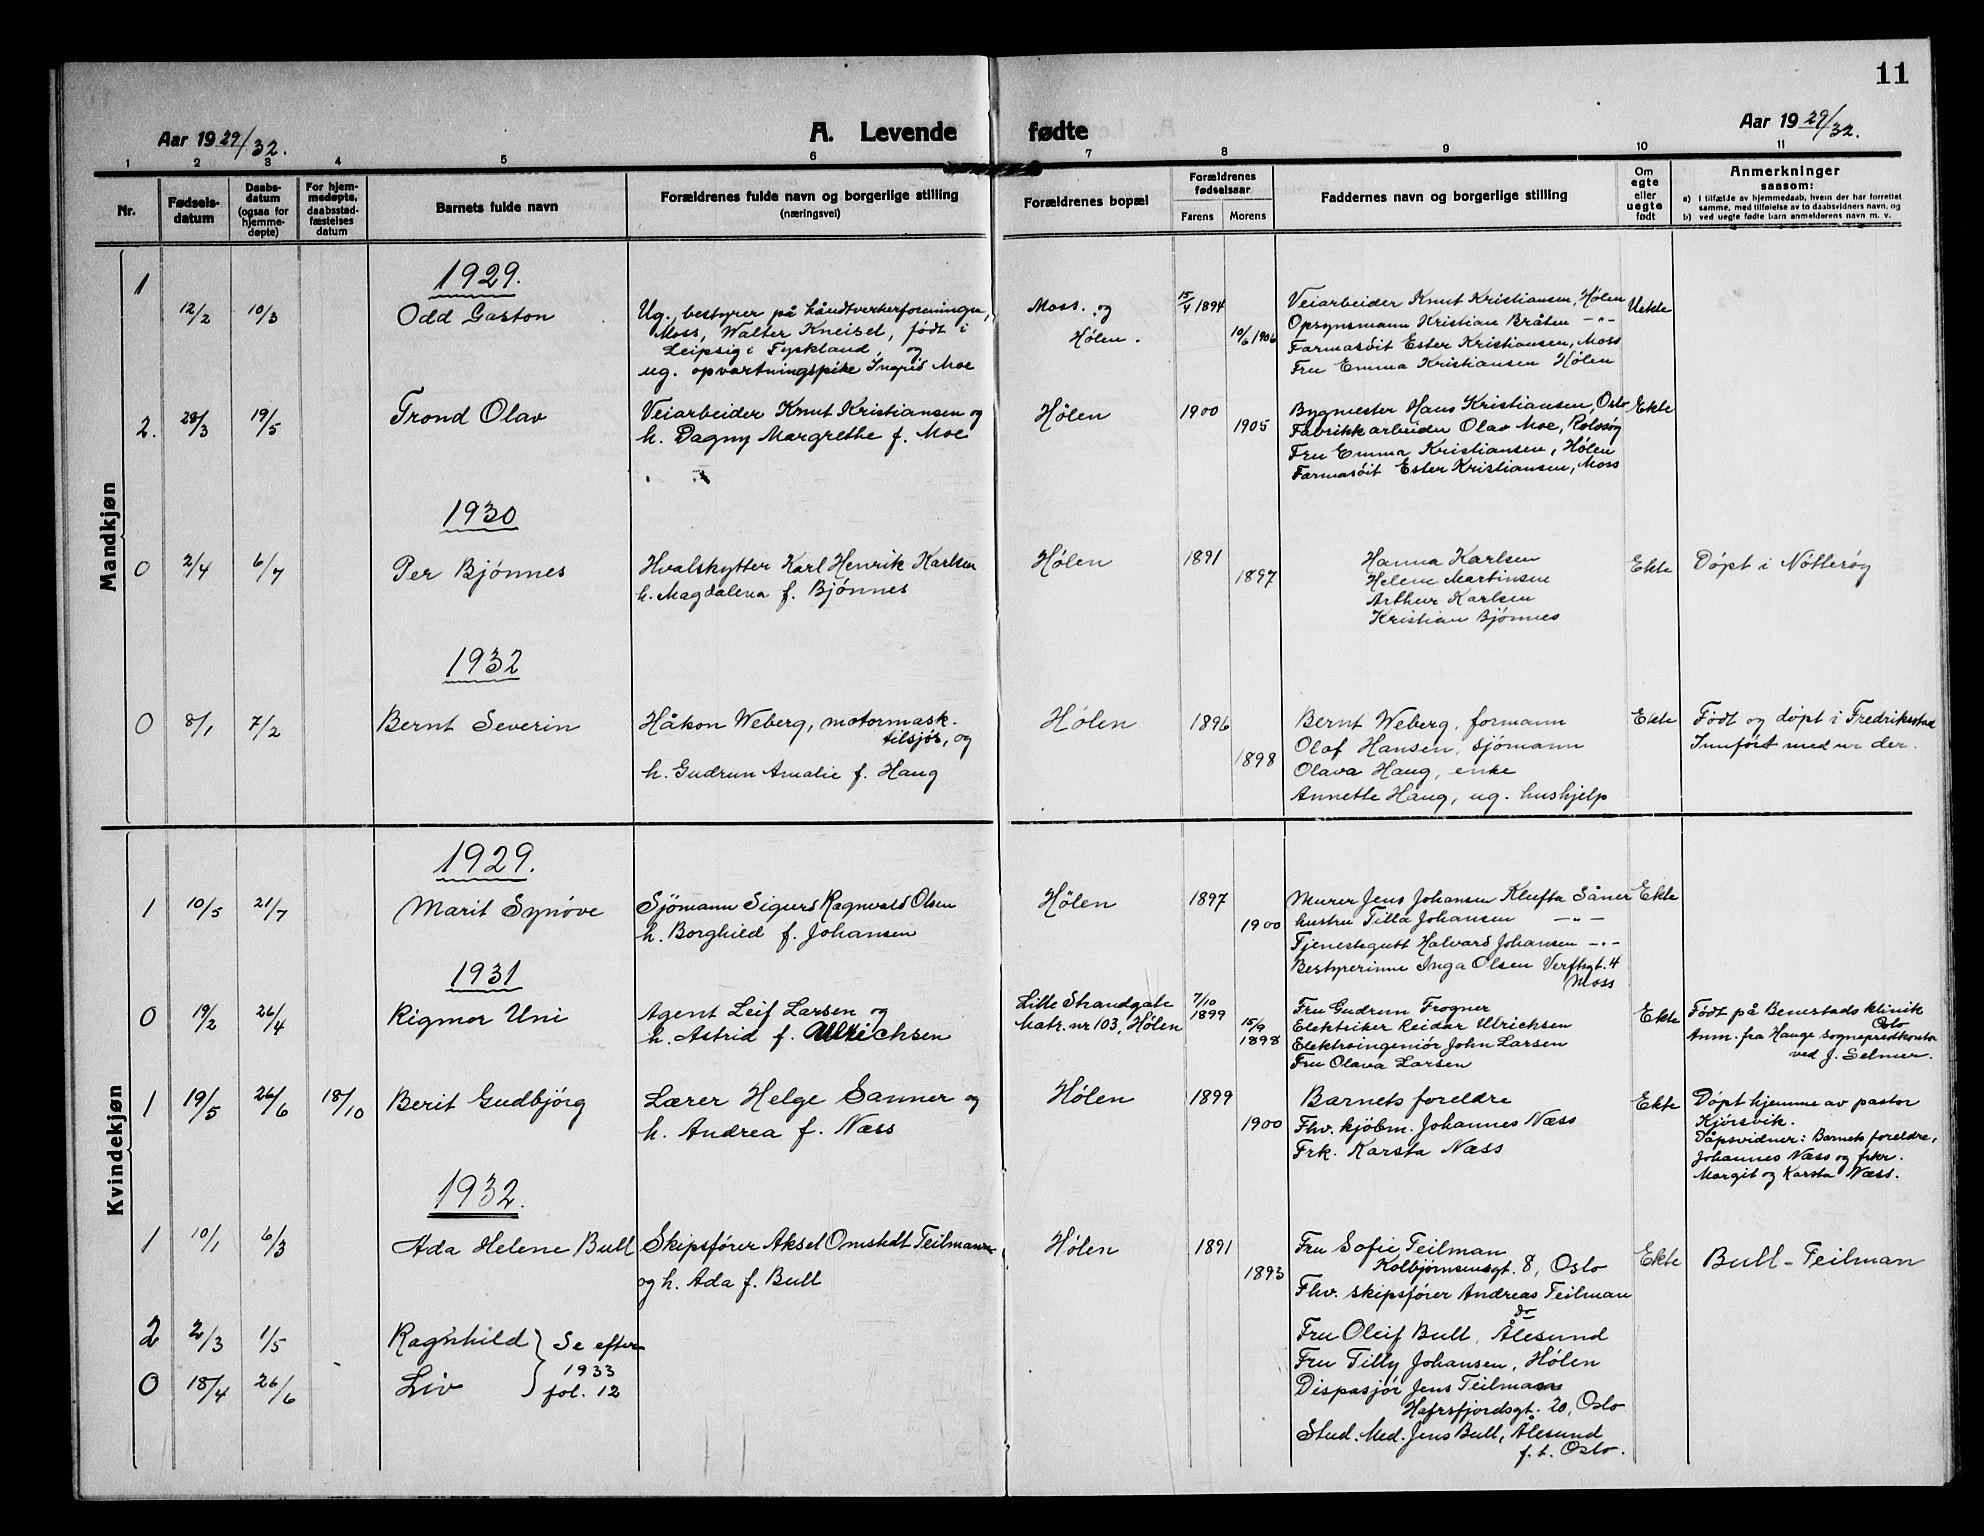 11
Aar 1929/32.
A. Levende fødte
Aar 1929/32.
1 2 3 4 5 6 7 8 9 10 11
Nr.
Fødsels-
datum
Daabs-
datum
(ogsaa for
hjemme-
døpte)
For hjem-
medøpte,
daabsstad-
fæstelses
datum
Barnets fulde navn
Forældrenes fulde navn og borgerlige stilling
(næringsvei)
Forældrenes bopæl
Forældrenes
fødselsaar
Farens Morens
Faddernes navn og borgerlige stilling
Om
egte
eller
uegte
født
Anmerkninger
saasom:
a) I tilfælde av hjemmedaab, hvem der har forrettet
samme, med tilføielse av to daabsvidners navn, og
b) ved uegte fødte barn anmelderens navn m. v.
Mandkjøn
1929.
1 12/2 10/3 Odd Gaston
Ug. bestyrer på Håndtverkerforeningen,
Moss, Walter Kneisel, født i
Leipsig i Tyskland, og
ug. opvartningspike Ingrid Moe
Moss. og
Hølen.
15/4 1894
10/6 1906
Veiarbeider Knut Kristiansen, Hølen
Opsynsmann Kristian Bråten -"-
Farmasøit Ester Kristiansen, Moss
Fru Emma Kristiansen Hølen
Uekte
2. 28/3 19/5 Trond Olav
Veiarbeider Knut Kristiansen og
h. Dagny Margrethe f. Moe
Hølen
1900
1905
Bygmester Hans Kristiansen, Oslo
Fabrikkarbeider Olav Moe, Rolvsøy
Fru Emma Kristiansen, Hølen
Farmasøit Ester Kristiansen, Moss
Ekte
1930
0 2/4 6/7 Per Bjønnes
Hvalskytter Karl Henrik Karlsen
h. Magdalena f. Bjønnes
Hølen
1891
1897
Hanna Karlsen
Helene Martinsen
Arthur Karlsen
Kristian Bjønnes
Ekte
Døpt i Nøtterøy
1932
0 8/1 7/2 Bernt Severin
Håkon Weberg, motormask-
tilsjøs, og
h. Gudrun Amalie f. Haug
Hølen
1896
1898
Bernt Weberg. formann
Olaf Hansen, sjømann
Olava Haug, enke
Annette Haug, ug. hushjelp
Ekte
Født og døpt i Fredrikstad
Innført med nr der.
Kvindekjøn
1929.
1 10/5 21/7 Marit Synøve
Sjømann Sigurd Ragnvald Olsen
h. Borghild f. Johansen
Hølen
1897
1900
Murer Jens Johansen Klufta Såner
hustru Tilla Johansen -"-
Tjenestegutt Halvard Johansen -"-
Bestyrerinne Inga Olsen Verftsgt. 4
Moss
Ekte
1931
0 19/2 26/4 Rigmor Uni
Agent Leif Larsen og
h. Astrid f. Ullrichsen
Lille Strandgate
Matr. nr 103, Hølen
7/10
1899
15/9
1898
Fru Gudrun Frogner
Elektriker Reidar Ulrichsen
Elektroingeniør John Larsen
Fru Olava Larsen
Ekte
Født på Benestads klinik
Oslo
Anm. fra Hauge sogneprestkontor
ved J. Selmer.
1 19/5 26/6 18/10 Berit Gudbjørg
Lærer Helge Sanner og
h. Andrea f. Næss
Hølen
1899
1900
Barnets foreldre
Fhv. kjøbm. Johannes Næss
Frk. Karsta Næss
Ekte
Døpt hjemme av pastor
Kjørsvik.
Dåpsvidner: Barnets foreldre,
Johannes Næss og frkr.
Margit og Karsta Næss.
1932.
1 10/1 6/3 Ada Helene Bull
Skipsfører Aksel Omstedt Teilmann
og h. Ada f. Bull
Hølen
1891
1893
Fru Sofie Teilman
Kolbjørnsensgt. 8, Oslo
Fhv. skipsfører Andreas Teilman
do
Fru Oleif Bull, Ålesund
Fru Tilly Johansen, Hølen
Dispasjør Jens Teilmann
Hafrsfjordsgt. 20, Oslo
Stud. Med. Jens Bull, Ålesund
f.t. Oslo.
Ekte
Bull-Teilman
2 2/3 1/5 Ragnhild } Se efter
1933
0 18/4 26/6 Liv } fol. 12